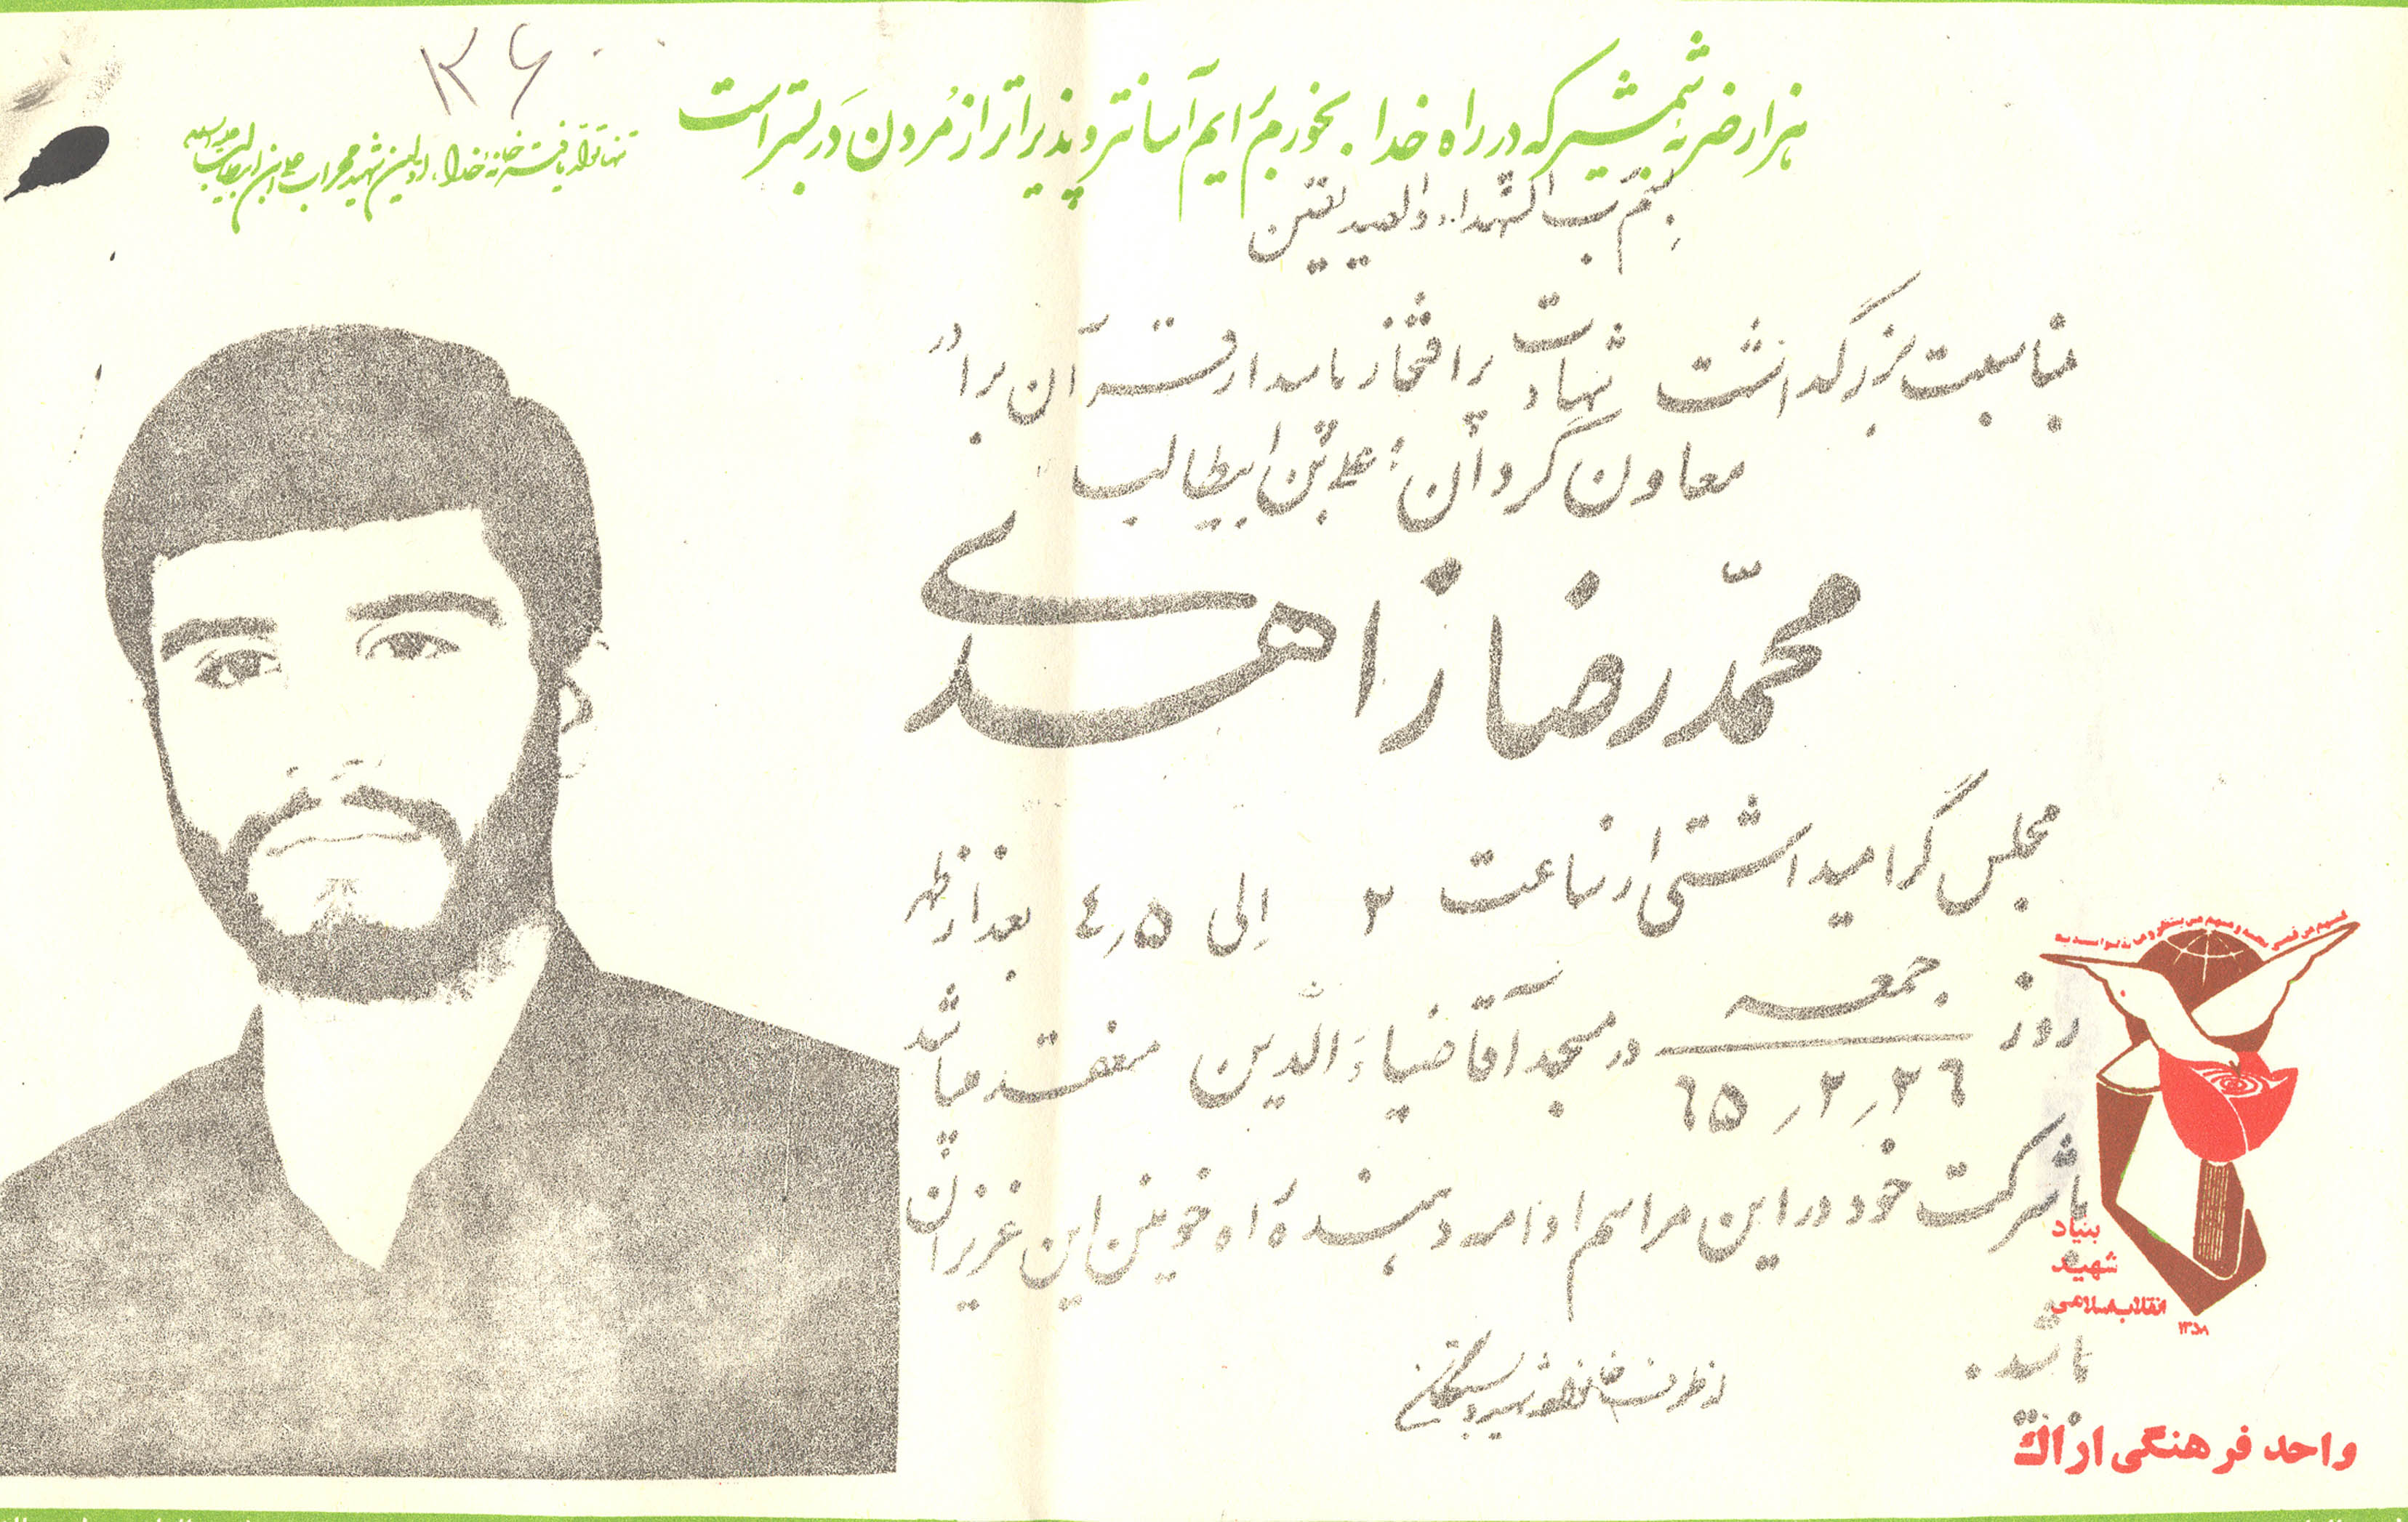 ۳۶
هزار ضربهٔ شمشیر که در راه خدا بخورم برایم آسانتر و پذیراتر از مُردن در بستر است
تنها تولد یافته خانهٔ خدا، اولین شهید محراب علی ابن ابیطالب
بسم رب الشهداء والصدیقین
بمناسبت بزرگداشت شهادت پر افتخار پاسدار قرآن برادر
معاون گردان: علی بن ابیطالب
محمّدرضا زاهدی
مجلس گرامیداشتی از ساعت ۲ الی ۴٫۵ بعد از ظهر
روز جمعه ۶۵٫۲٫۲۶ در مسجد آقا ضیاءَالدین منعقد میباشد
با شرکت خود در این مراسم ادامه دهندهٔ راه خونین این عزیزان
باشید.
از طرف خانواده شهید و بستگان
بنیاد
شهید
انقلاب اسلامی
۱۳۵۸
واحد فرهنگی اراک